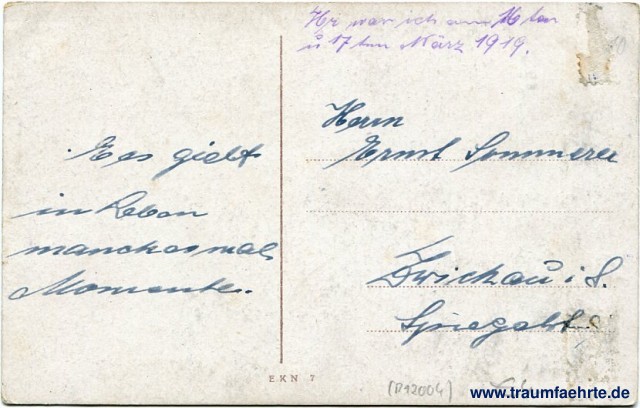 Hr war ich am 16 ten
u 17 ten März 1919.
Es giebt
in Leben
manchesmal
Momente.
Herrn
Ernst Sommerer
Zwickau i. S.
EKN 7
(R12004)
www.traumfaehrte.de